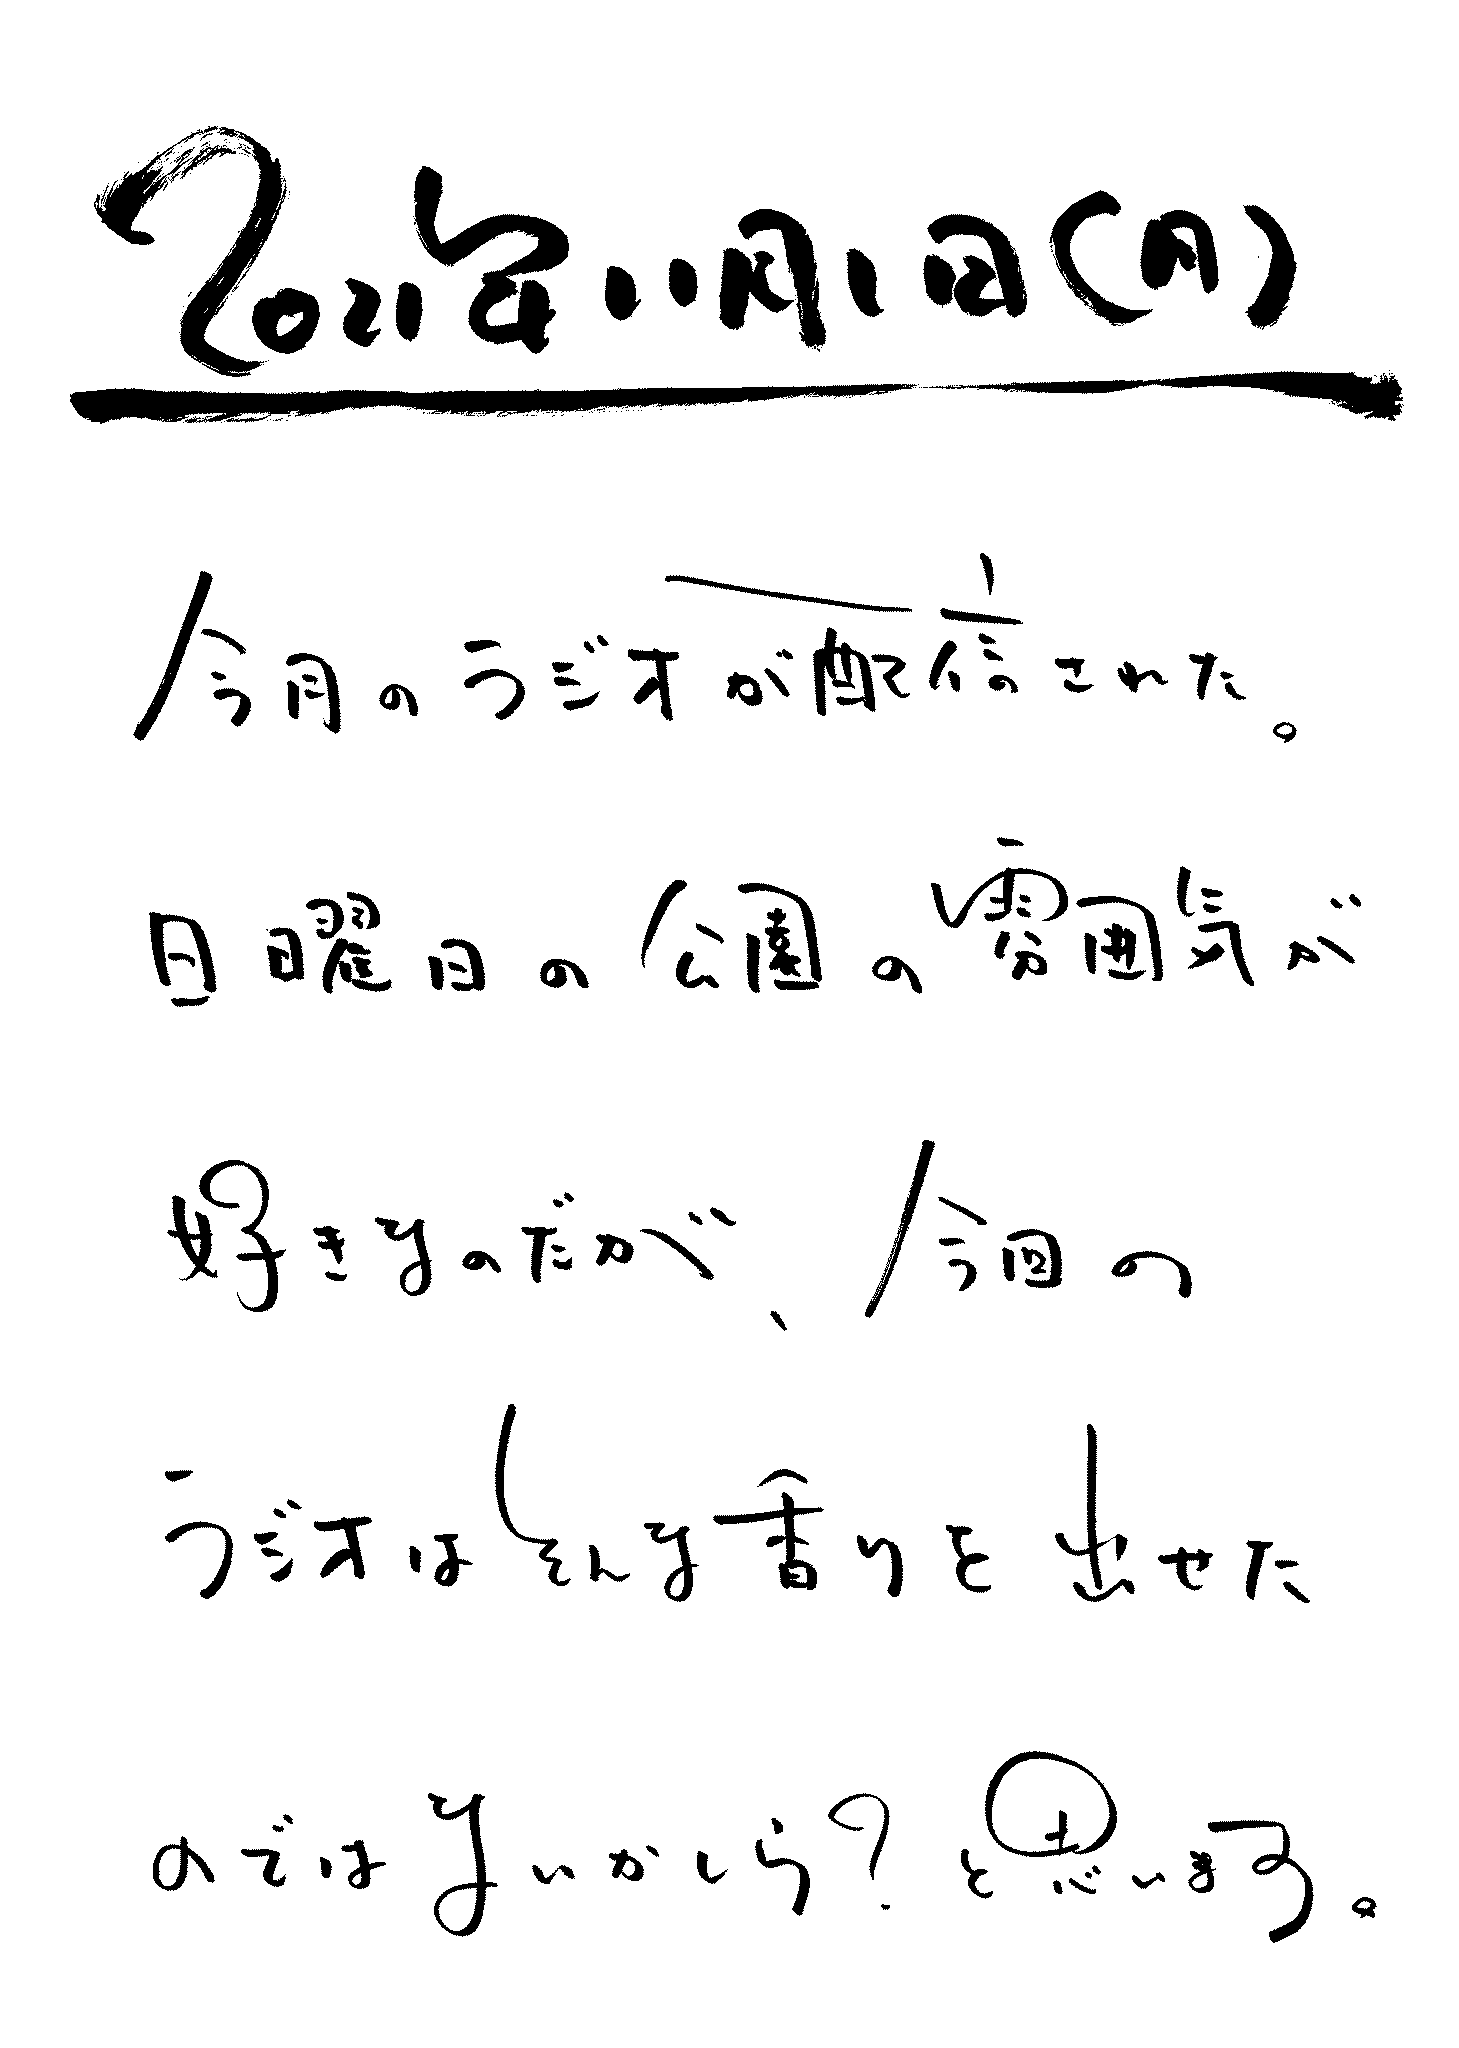 2021年11月1日(月)
今月のラジオが配信された。
日曜日の公園の雰囲気が
好きなのだが、今回の
ラジオはそんな香りを出せた
のではないかしら?と思います。